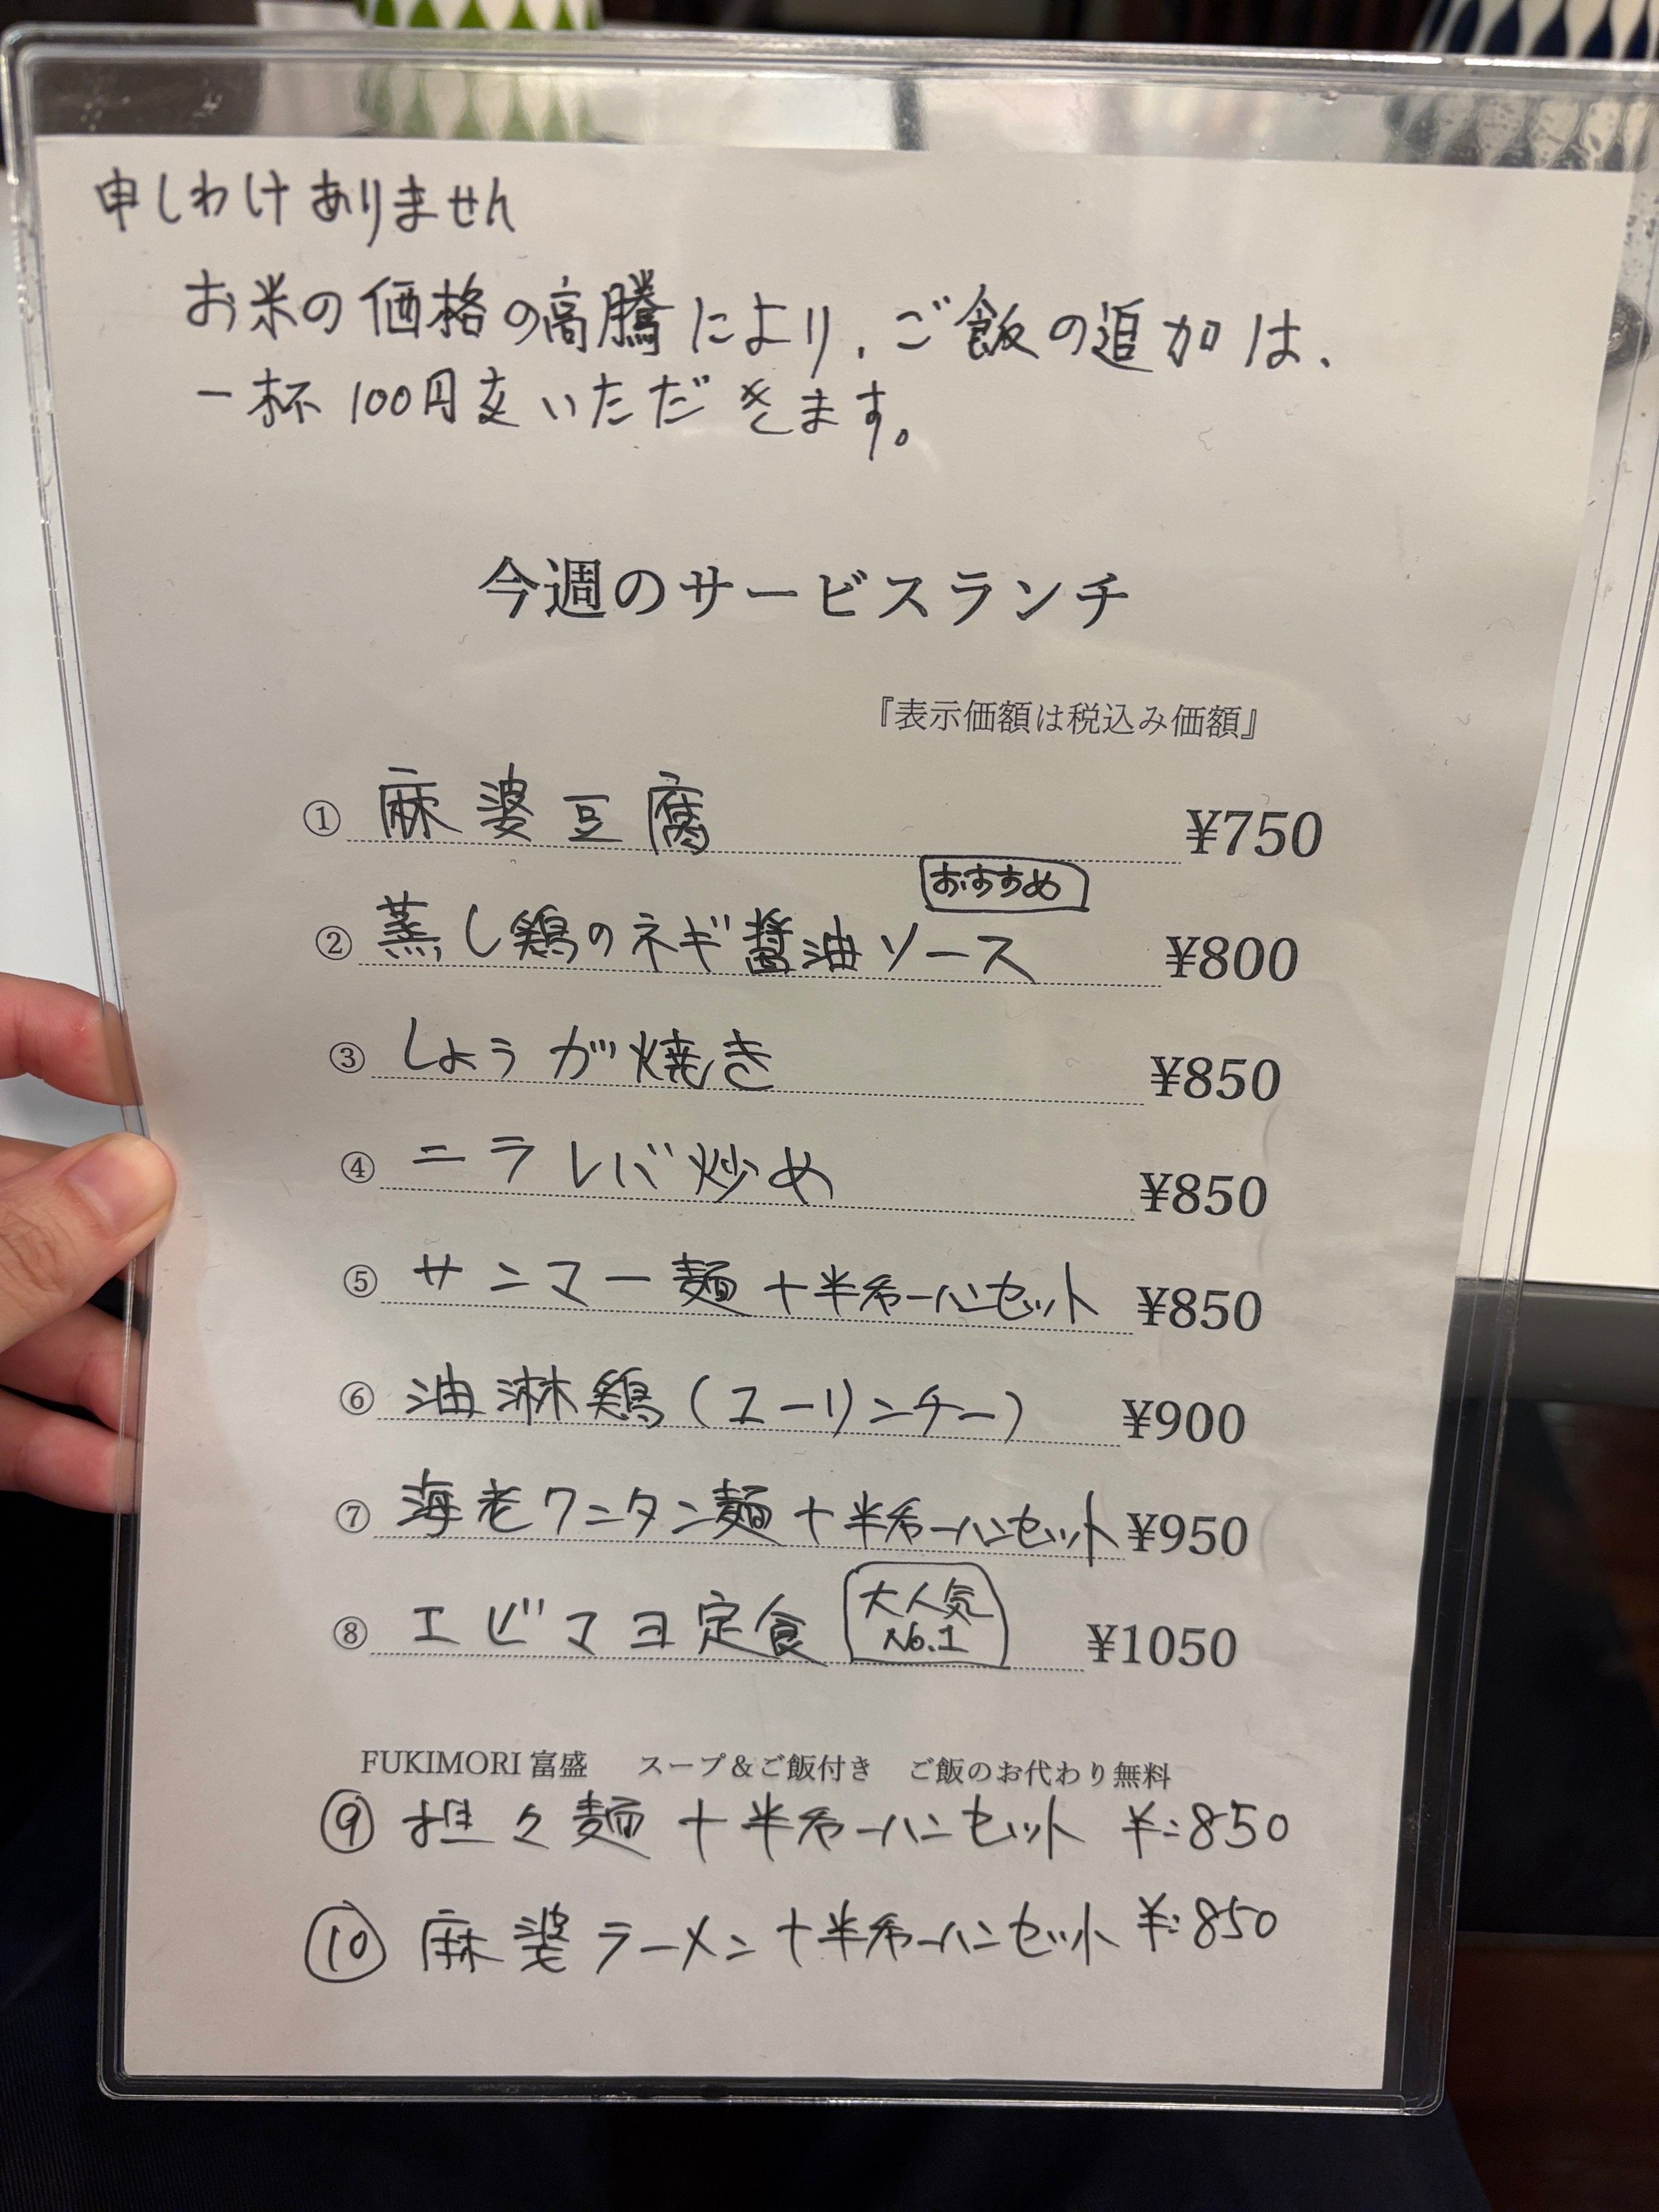 申しわけありません
お米の価格の高騰により、ご飯の追加は、
一杯100円支いただきます。
今週のサービスランチ
『表示価額は税込み価額』
① 麻婆豆腐 ¥750
おすすめ
② 蒸し鶏のネギ醤油ソース ¥800
③ しょうが焼き ¥850
④ ニラレバ炒め ¥850
⑤ サンマー麺+半チャーハンセット ¥850
⑥ 油淋鶏(ユーリンチー) ¥900
⑦ 海老ワンタン麺+半チャーハンセット ¥950
⑧ エビマヨ定食 大人気 No.1 ¥1050
FUKIMORI 富盛 スープ&ご飯付き ご飯のお代わり無料
⑨ 担々麺+半チャーハンセット ¥:850
⑩ 麻婆ラーメン+半チャーハンセット ¥:850